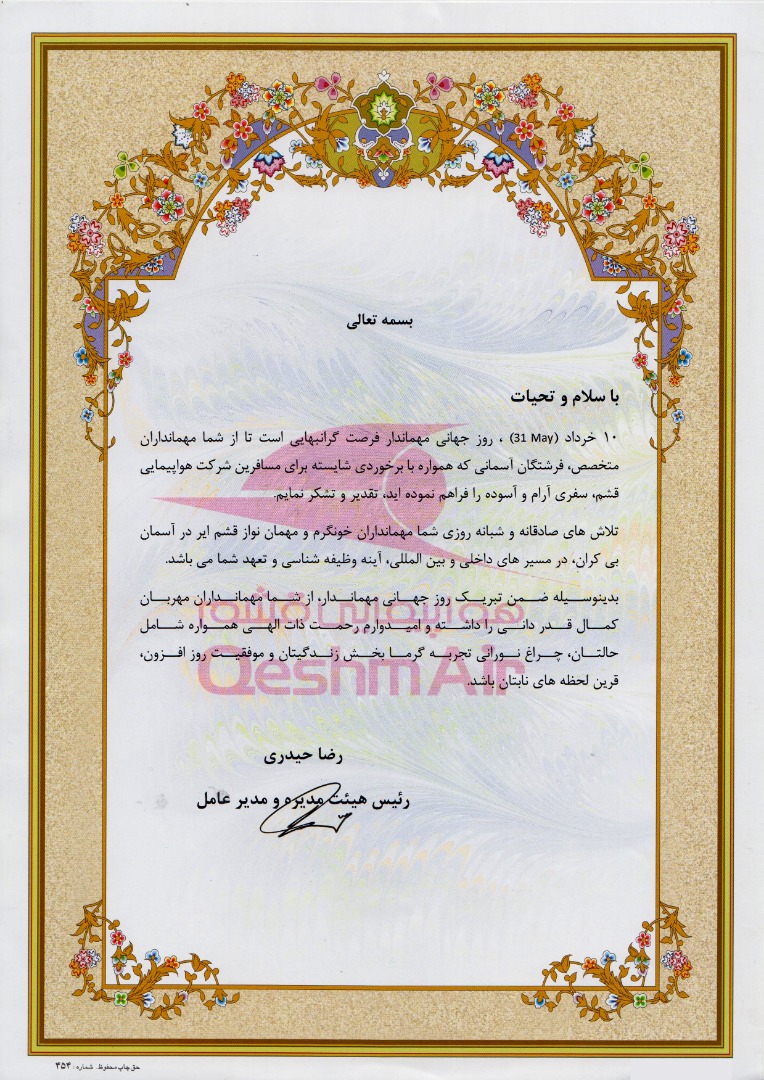 بسمه تعالی
با سلام و تحیات
۱۰ خرداد (31 May) ، روز جهانی مهماندار فرصت گرانبهایی است تا از شما مهمانداران
متخصص، فرشتگان آسمانی که همواره با برخوردی شایسته برای مسافرین شرکت هواپیمایی
قشم، سفری آرام و آسوده را فراهم نموده اید، تقدیر و تشکر نمایم.
تلاش های صادقانه و شبانه روزی شما مهمانداران خونگرم و مهمان نواز قشم ایر در آسمان
بی کران، در مسیر های داخلی و بین المللی، آینه وظیفه شناسی و تعهد شما می باشد.
بدینوسیله ضمن تبریک روز جهانی مهماندار، از شما مهمانداران مهربان
کمال قدر دانی را داشته و امیدوارم رحمت ذات الهی همواره شامل
حالتان، چراغ نورانی تجربه گرما بخش زندگیتان و موفقیت روز افزون،
قرین لحظه های نابتان باشد.
هواپیمایی قشم
Qeshm Air
رضا حیدری
رئیس هیئت مدیره و مدیر عامل
حق چاپ محفوظ. شماره: ۴۵۴